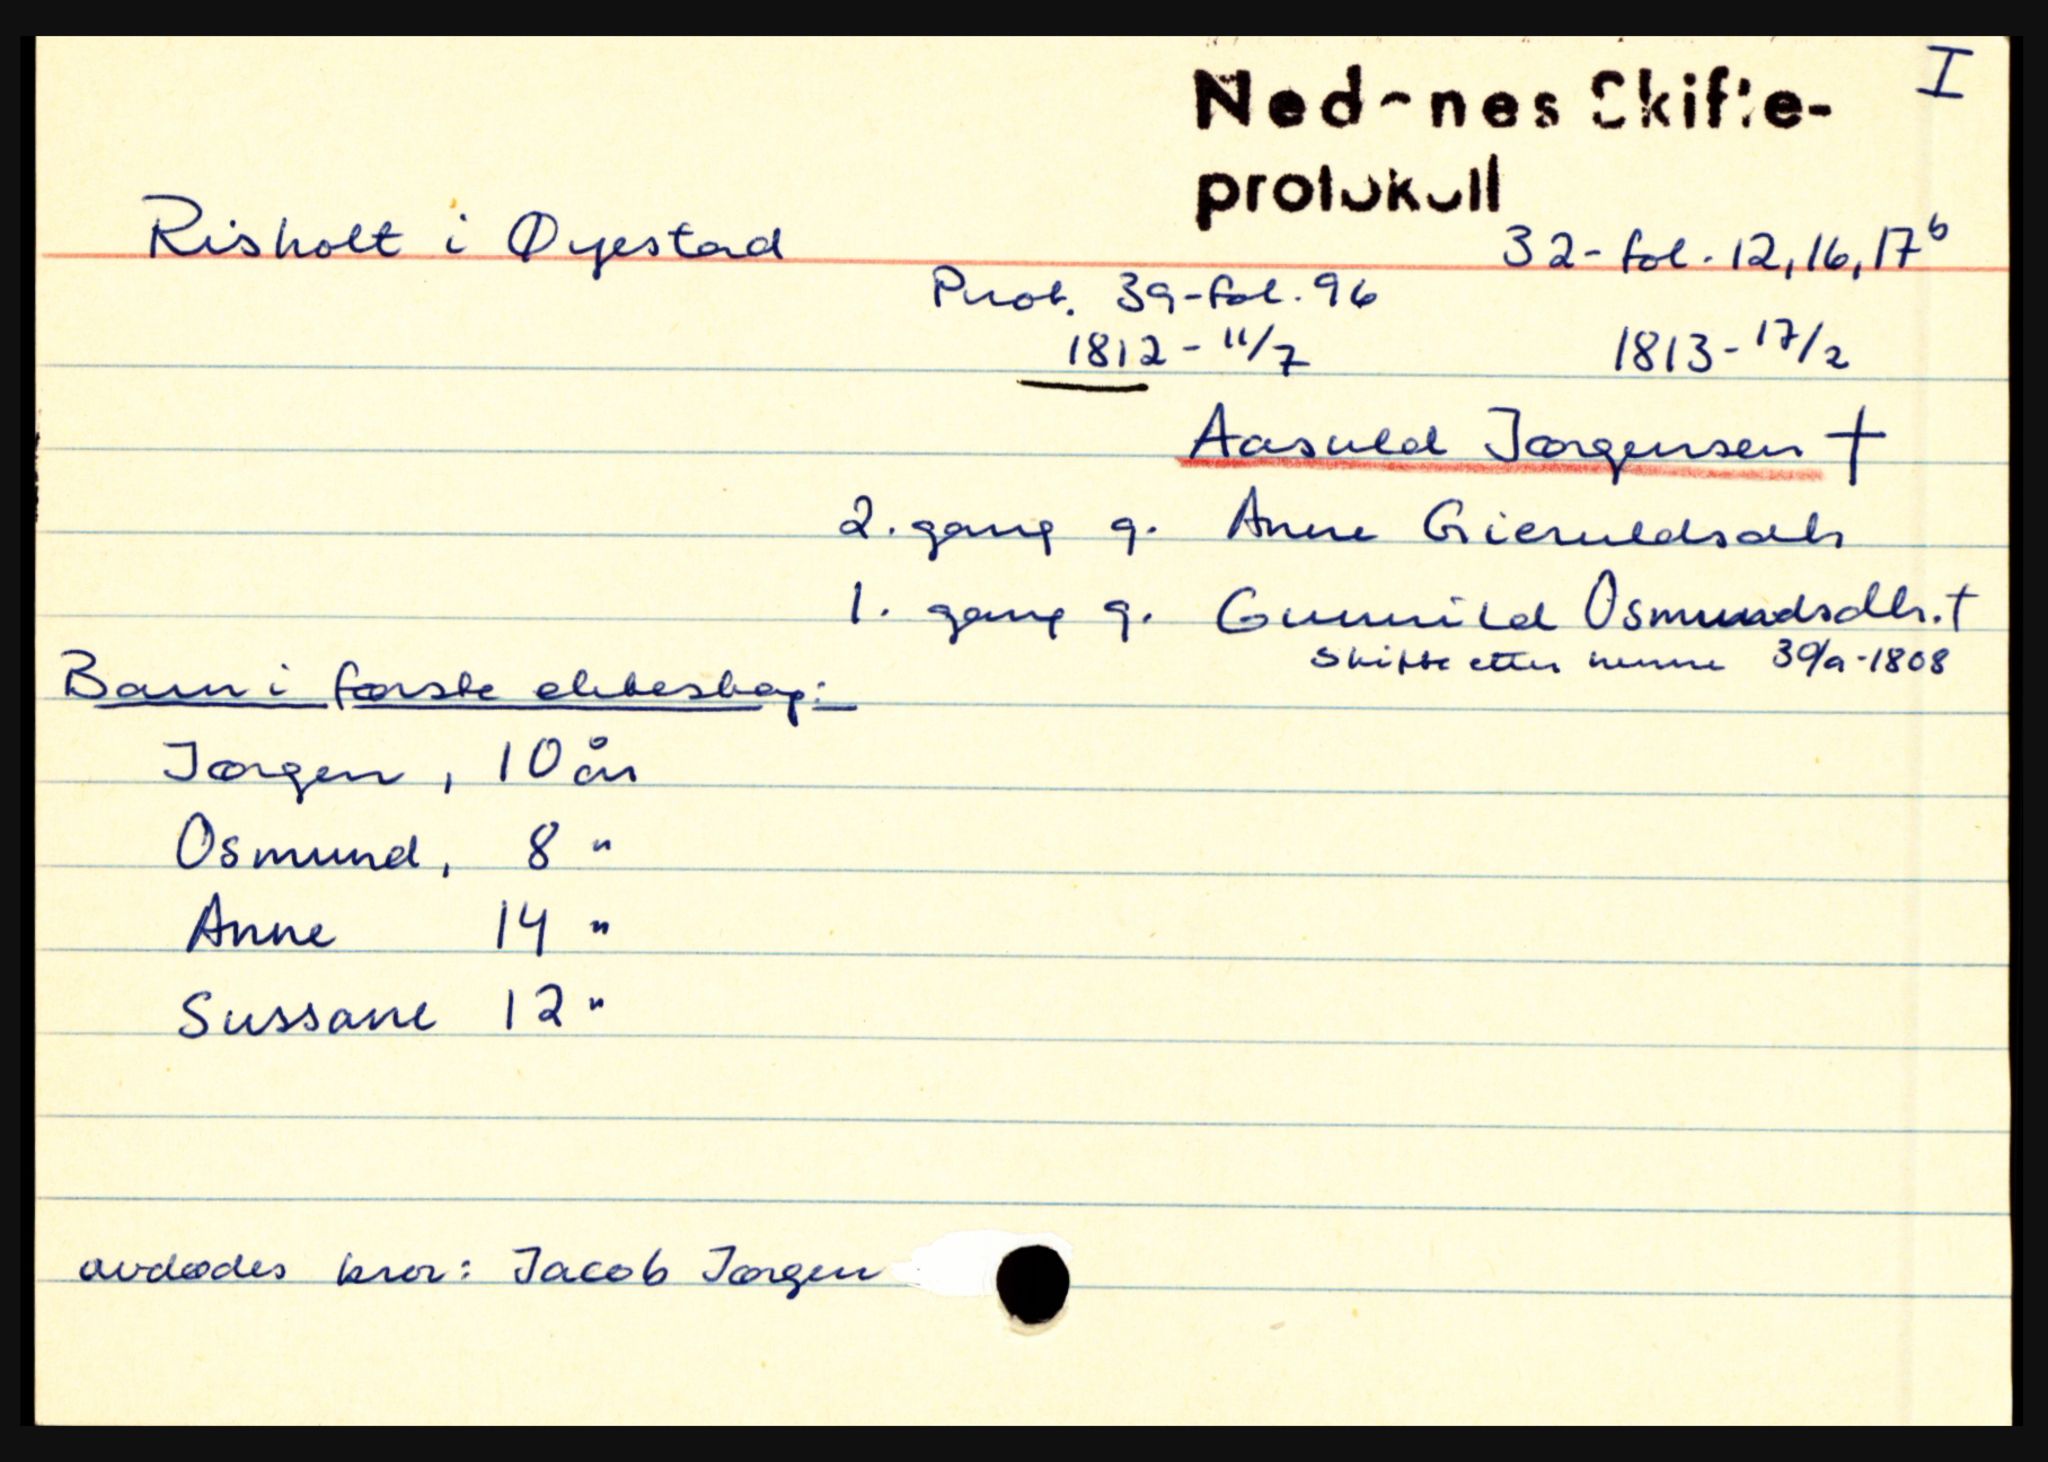 I
Nedenes Skifte-
protokoll
Risholt i Øyestad
32-fol. 12, 16, 17b
Prot. 39-fol. 96
1812 - 11/7 1813 - 17/2
Aasuld Jørgensen †
2. gang g. Anne Gieruldsdtr
1. gang g. Gunnild Osmundsdtr. †
Skifte etter henne 30/9-1808
Barn i første ekteskap:
Jørgen, 10 år
Osmund, 8 "
Anne 14 "
Sussane 12 "
avdødes bror: Jacob Jørgen